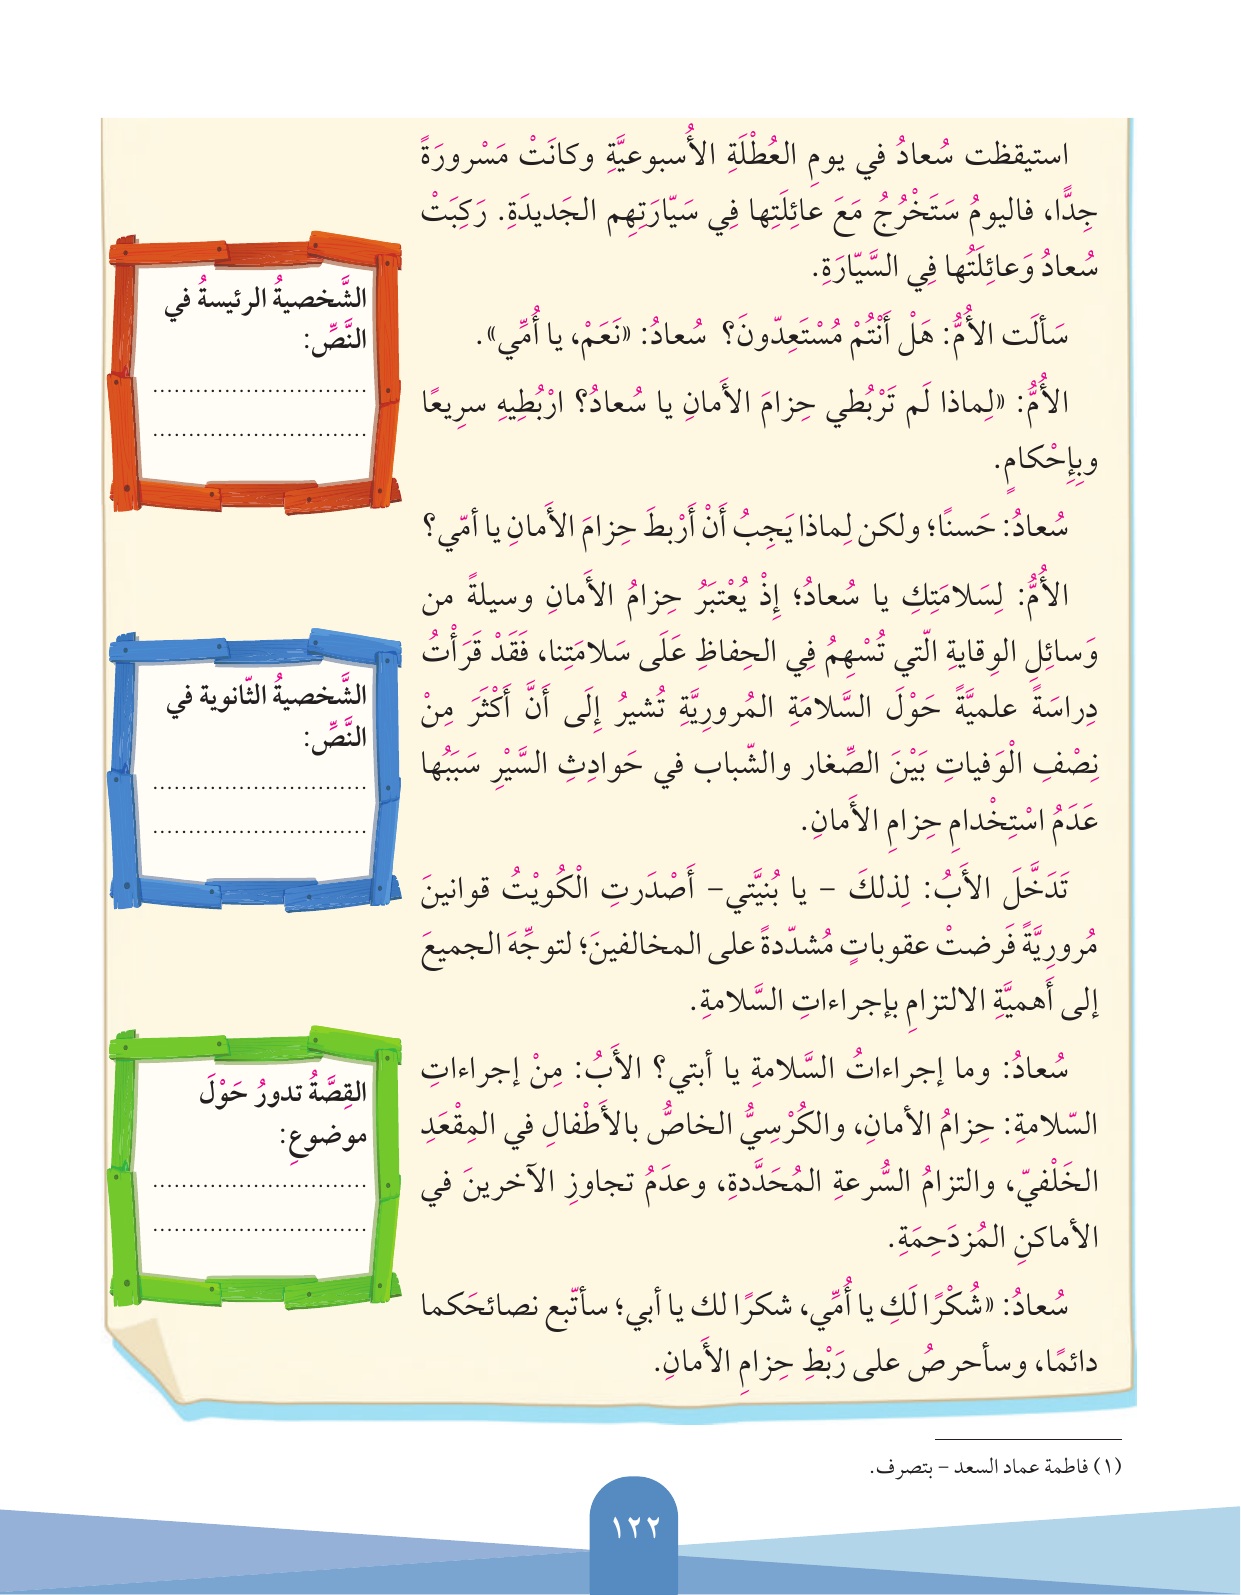 استيقظت سُعادُ في يومِ العُطْلَةِ الأُسبوعيَّةِ وكانَتْ مَسْرورَةً
جِدًّا، فاليومُ سَتَخْرُجُ مَعَ عائِلَتِها فِي سَيّارَتِهِم الجَديدَةِ. رَكِبَتْ
سُعادُ وَعائِلَتُها فِي السَّيّارَةِ.
سَألَت الأُمُّ: هَلْ أَنْتُمْ مُسْتَعِدّونَ؟ سُعادُ: «نَعَمْ، يا أُمِّي».
الأُمُّ: «لِماذا لَم تَرْبُطي حِزامَ الأَمانِ يا سُعادُ؟ ارْبُطِيهِ سرِيعًا
وبِإِحْكامٍ.
سُعادُ: حَسنًا؛ ولكن لِماذا يَجِبُ أَنْ أَرْبطَ حِزامَ الأَمانِ يا أمّي؟
الأُمُّ: لِسَلامَتِكِ يا سُعادُ؛ إِذْ يُعْتبَرُ حِزامُ الأَمانِ وسيلةً من
وَسائِلِ الوِقايةِ الّتي تُسْهِمُ فِي الحِفاظِ عَلَى سَلامَتِنا، فَقَدْ قَرَأْتُ
دِراسَةً علميَّةً حَوْلَ السَّلامَةِ المُرورِيَّةِ تُشيرُ إِلَى أَنَّ أَكْثَرَ مِنْ
نِصْفِ الْوَفياتِ بَيْنَ الصِّغار والشّباب في حَوادِثِ السَّيْرِ سَبَبُها
عَدَمُ اسْتِخْدامِ حِزامِ الأَمانِ.
تَدَخَّلَ الأَبُ: لِذلكَ – يا بُنيَّتي– أَصْدَرتِ الْكُويْتُ قوانينَ
مُرورِيَّةً فَرضتْ عقوباتٍ مُشدّدةً على المخالفينَ؛ لتوجِّهَ الجميعَ
إلى أَهميَّةِ الالتزامِ بإجراءاتِ السَّلامةِ.
سُعادُ: وما إجراءاتُ السَّلامةِ يا أبتي؟ الأَبُ: مِنْ إجراءاتِ
السّلامةِ: حِزامُ الأمانِ، والكُرْسِيُّ الخاصُّ بالأَطْفالِ في المِقْعَدِ
الخَلْفيّ، والتزامُ السُّرعةِ المُحَدَّدةِ، وعدَمُ تجاوزِ الآخرينَ في
الأماكنِ المُزدَحِمَةِ.
سُعادُ: «شُكْرًا لَكِ يا أُمِّي، شكرًا لك يا أبي؛ سأتّبع نصائحَكما
دائمًا، وسأحرصُ على رَبْطِ حِزامِ الأَمانِ.
الشَّخصيةُ الرئيسةُ في
النَّصِّ:
..............................
..............................
الشَّخصيةُ الثّانوية في
النَّصِّ:
..............................
..............................
القِصَّةُ تدورُ حَوْلَ
موضوعِ:
..............................
..............................
(١) فاطمة عماد السعد – بتصرف.
١٢٢